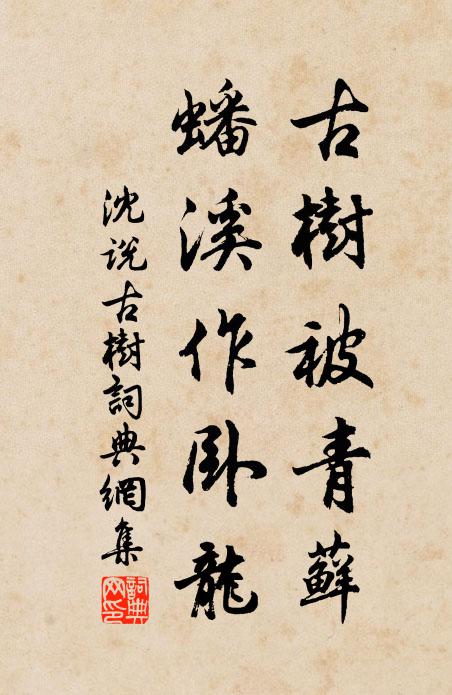 古樹被青蘚
蟠溪作卧龍
沈说古樹詞典網集
詞典網印